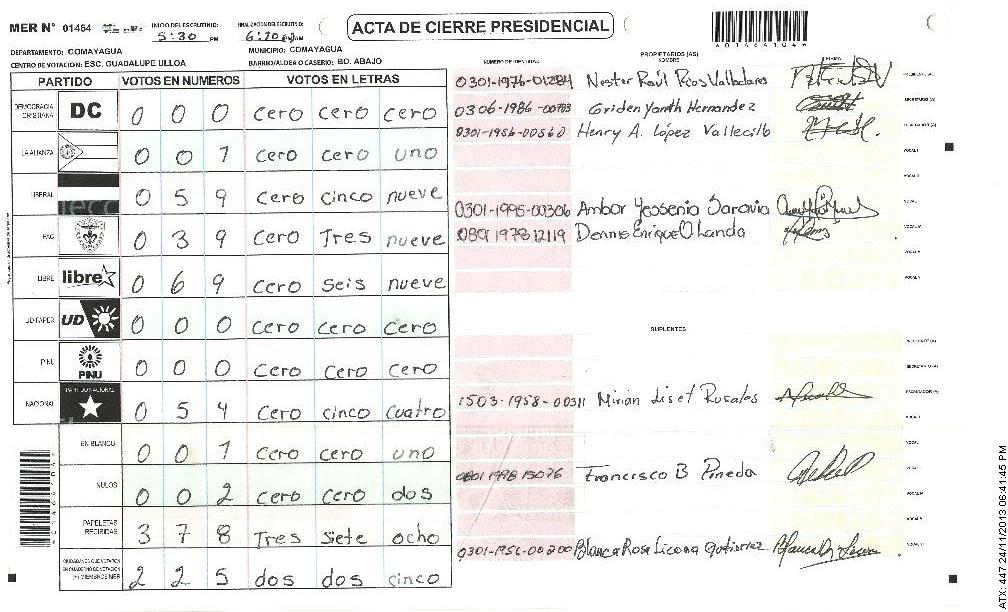 MER N° 01464
INICIO DEL ESCRUTINIO: 5:30 PM
FINALIZACION DEL ESCRUTINIO:
ACTA DE CIERRE PRESIDENCIAL
DEPARTAMENTO: COMAYAGUA
MUNICIPIO: COMAYAGUA
CENTRO DE VOTACION: ESC. GUADALUPE ULLOA
BARRIO/ALDEA O CASERIO: BO. ABAJO
PARTIDO VOTOS EN NUMEROS VOTOS EN LETRAS
DEMOCRACIA CRISTIANA DC 0 0 0 cero cero cero
LA ALIANZA 0 0 1 cero cero uno
LIBERAL 0 5 9 cero cinco nueve
PAC 0 3 9 cero Tres nueve
LIBRE libre 0 6 9 cero seis nueve
UD FAPER UD 0 0 0 cero cero cero
PINU PINU 0 0 0 cero cero cero
NACIONAL PARTIDO NACIONAL 0 5 4 cero cinco cuatro
EN BLANCO 0 0 1 cero cero uno
NULOS 0 0 2 cero cero dos
PAPELETAS RECIBIDAS 3 7 8 Tres siete ocho
CIUDADANOS QUE VOTARON EN CUADERNO DE VOTACION (+) MIEMBROS MER 2 2 5 dos dos cinco
PROPIETARIOS (AS)
NUMERO DE IDENTIDAD NOMBRE FIRMA
0301-1976-01284 Nestor Raúl Rios Valladares PRESIDENTE (A)
0306-1986-00703 Griden Yamith Hernandez SECRETARIO (A)
0301-1986-00560 Henry A. López Vallecillo ESCRUTADOR (A)
VOCAL I
VOCAL II
0301-1995-00306 Ambar Yessenia Saravia
0801 1978 12119 Dennis Enrique
SUPLENTES
PRESIDENTE (A)
SECRETARIO (A)
1503-1958-00311 Mirian Liset Rosales ESCRUTADOR (A)
VOCAL I
0801 1998 15076 Francisco B Pineda
Blanca Rosa Licona Gutierrez
ATX: 447 24/11/2013 06:41:45 PM